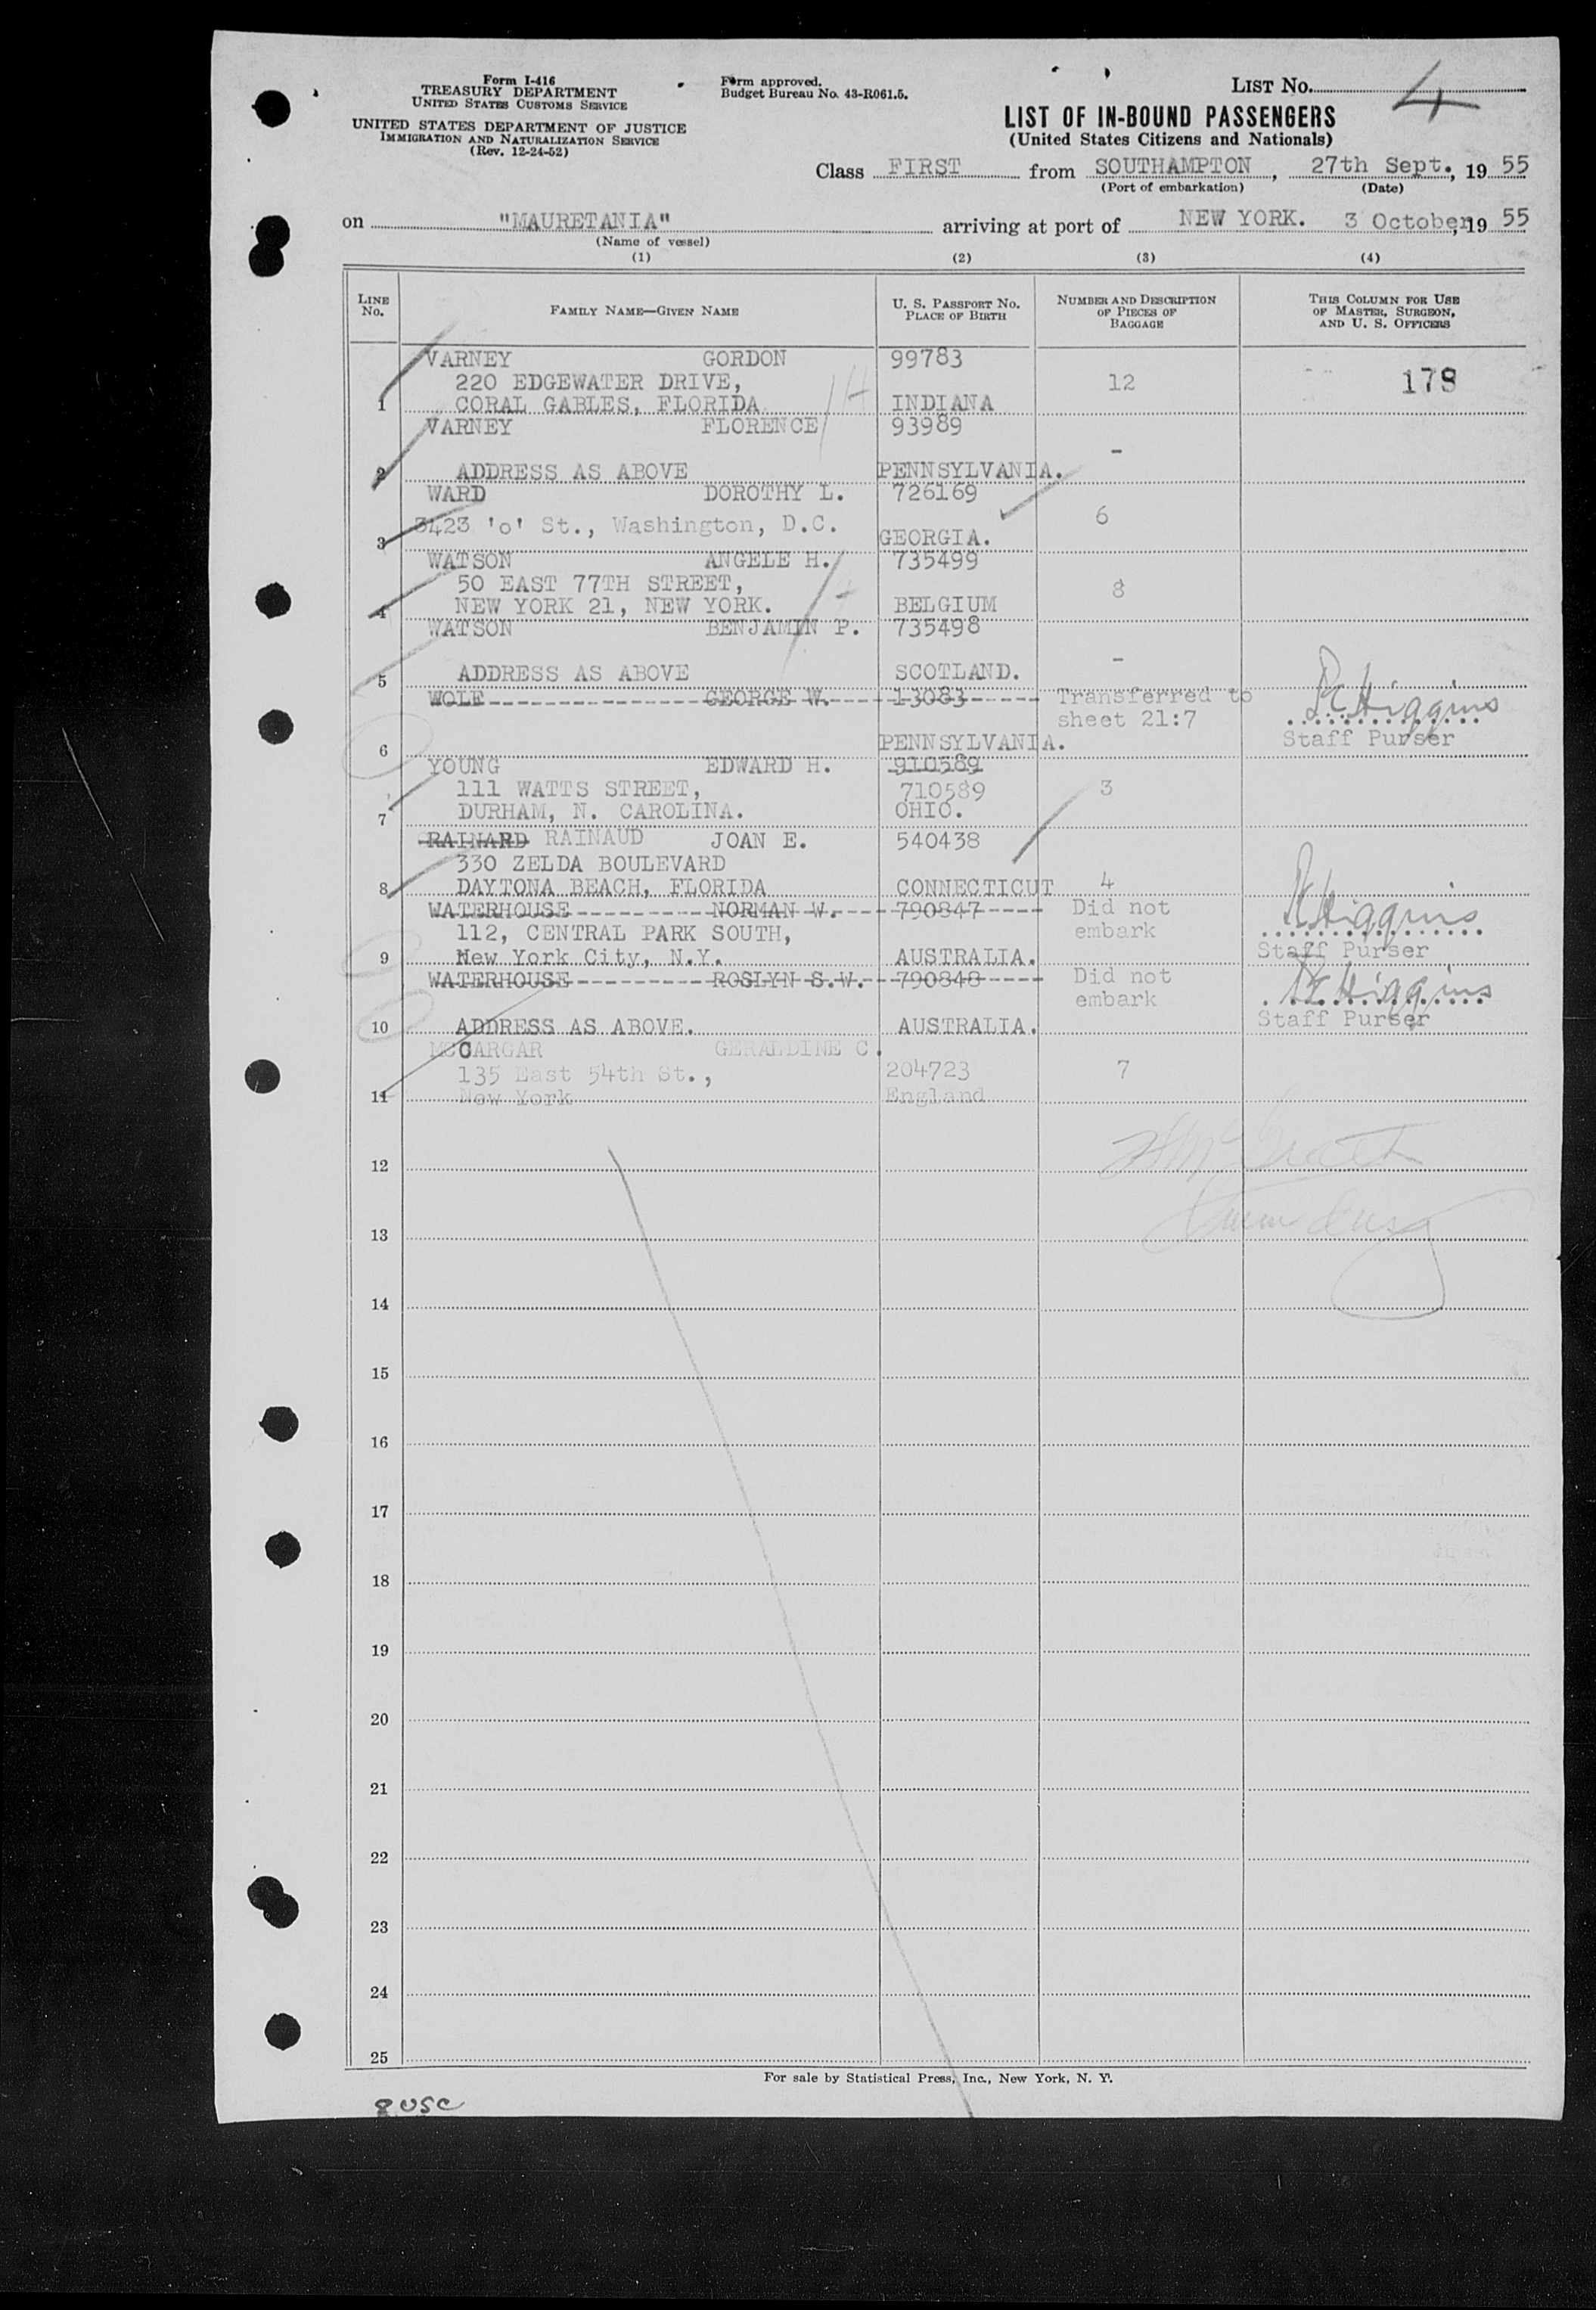 Form I-416
TREASURY DEPARTMENT
UNITED STATES CUSTOMS SERVICE
UNITED STATES DEPARTMENT OF JUSTICE
IMMIGRATION AND NATURALIZATION SERVICE
(Rev. 12-24-52)
Form approved.
Budget Bureau No. 43-R061.5.
LIST No. 4
LIST OF IN-BOUND PASSENGERS
(United States Citizens and Nationals)
Class FIRST from SOUTHAMPTON, 27th Sept., 19 55
(Port of embarkation) (Date)
on "MAURETANIA" arriving at port of NEW YORK. 3 October, 19 55
(Name of vessel)
(1) (2) (3) (4)
LINE No. FAMILY NAME—GIVEN NAME U. S. PASSPORT No. PLACE OF BIRTH NUMBER AND DESCRIPTION OF PIECES OF BAGGAGE THIS COLUMN FOR USE OF MASTER, SURGEON, AND U. S. OFFICERS
VARNEY GORDON 99783
220 EDGEWATER DRIVE, 12 178
1 CORAL GABLES, FLORIDA INDIANA
VARNEY FLORENCE 93989
-
2 ADDRESS AS ABOVE PENNSYLVANIA.
WARD DOROTHY L. 726169
3423 'o' St., Washington, D.C. 6
3 GEORGIA.
WATSON ANGELE H. 735499
50 EAST 77TH STREET, 8
4 NEW YORK 21, NEW YORK. BELGIUM
WATSON BENJAMIN P. 735498
-
5 ADDRESS AS ABOVE SCOTLAND.
WOLF GEORGE W. 13083 Transferred to
sheet 21:7 Higgins
6 PENNSYLVANIA. Staff Purser
YOUNG EDWARD H. 910589
111 WATTS STREET, 710589 3
7 DURHAM, N. CAROLINA. OHIO.
RAINARD RAINAUD JOAN E. 540438
330 ZELDA BOULEVARD
8 DAYTONA BEACH, FLORIDA CONNECTICUT 4
WATERHOUSE NORMAN W. 790847 Did not
112, CENTRAL PARK SOUTH, embark Higgins
9 New York City, N.Y. AUSTRALIA. Staff Purser
WATERHOUSE ROSLYN S.W. 790848 Did not
embark Higgins
10 ADDRESS AS ABOVE. AUSTRALIA. Staff Purser
MCCARGAR GERALDINE C.
135 East 54th St., 204723 7
11 New York England
12
13
14
15
16
17
18
19
20
21
22
23
24
25
For sale by Statistical Press, Inc., New York, N. Y.
8 USC